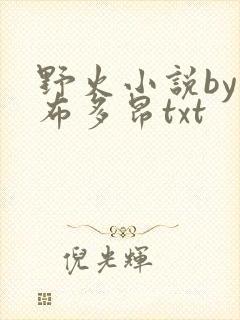 野火小説by
布多昂txt
倪光輝